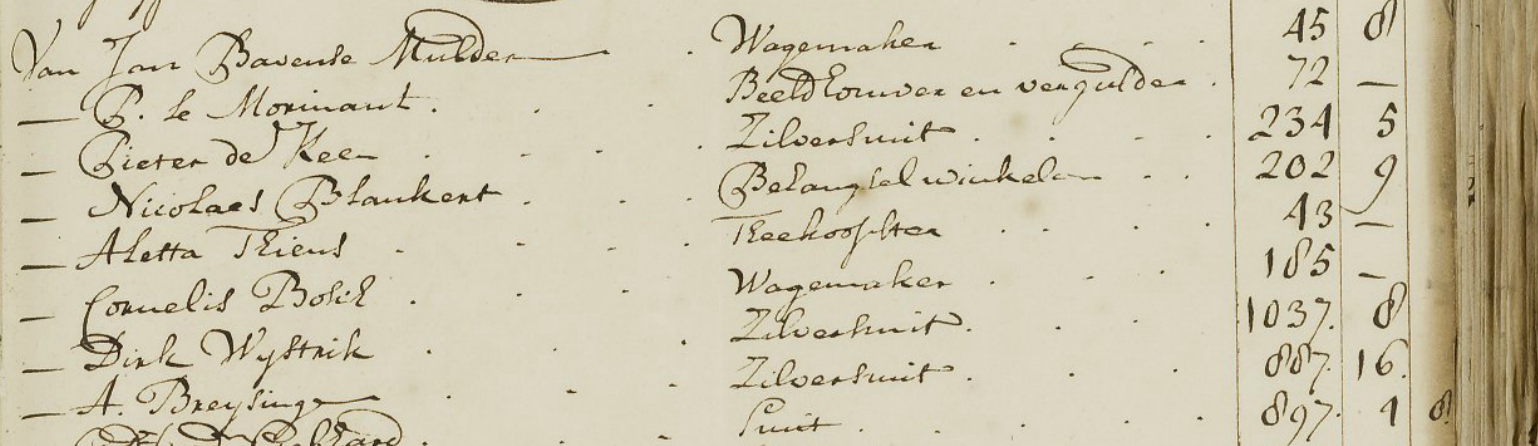 Van Jan Bavense Mulder Wagemaker 45 8
— P. le Morinant. Beeldhouwer en vergulder 72 —
— Pieter de Keer Zilversmit 234 5
— Nicolaes Blankert Behangsel winkelier 202 9
— Aletta Thiens Theekoopster 43 —
— Cornelis Wagemaker 185 —
— Dirk Wystrik Zilversmit 1037. 8
— A. Breysinge Zilversmit 887. 16.
Smit 897. 4 8